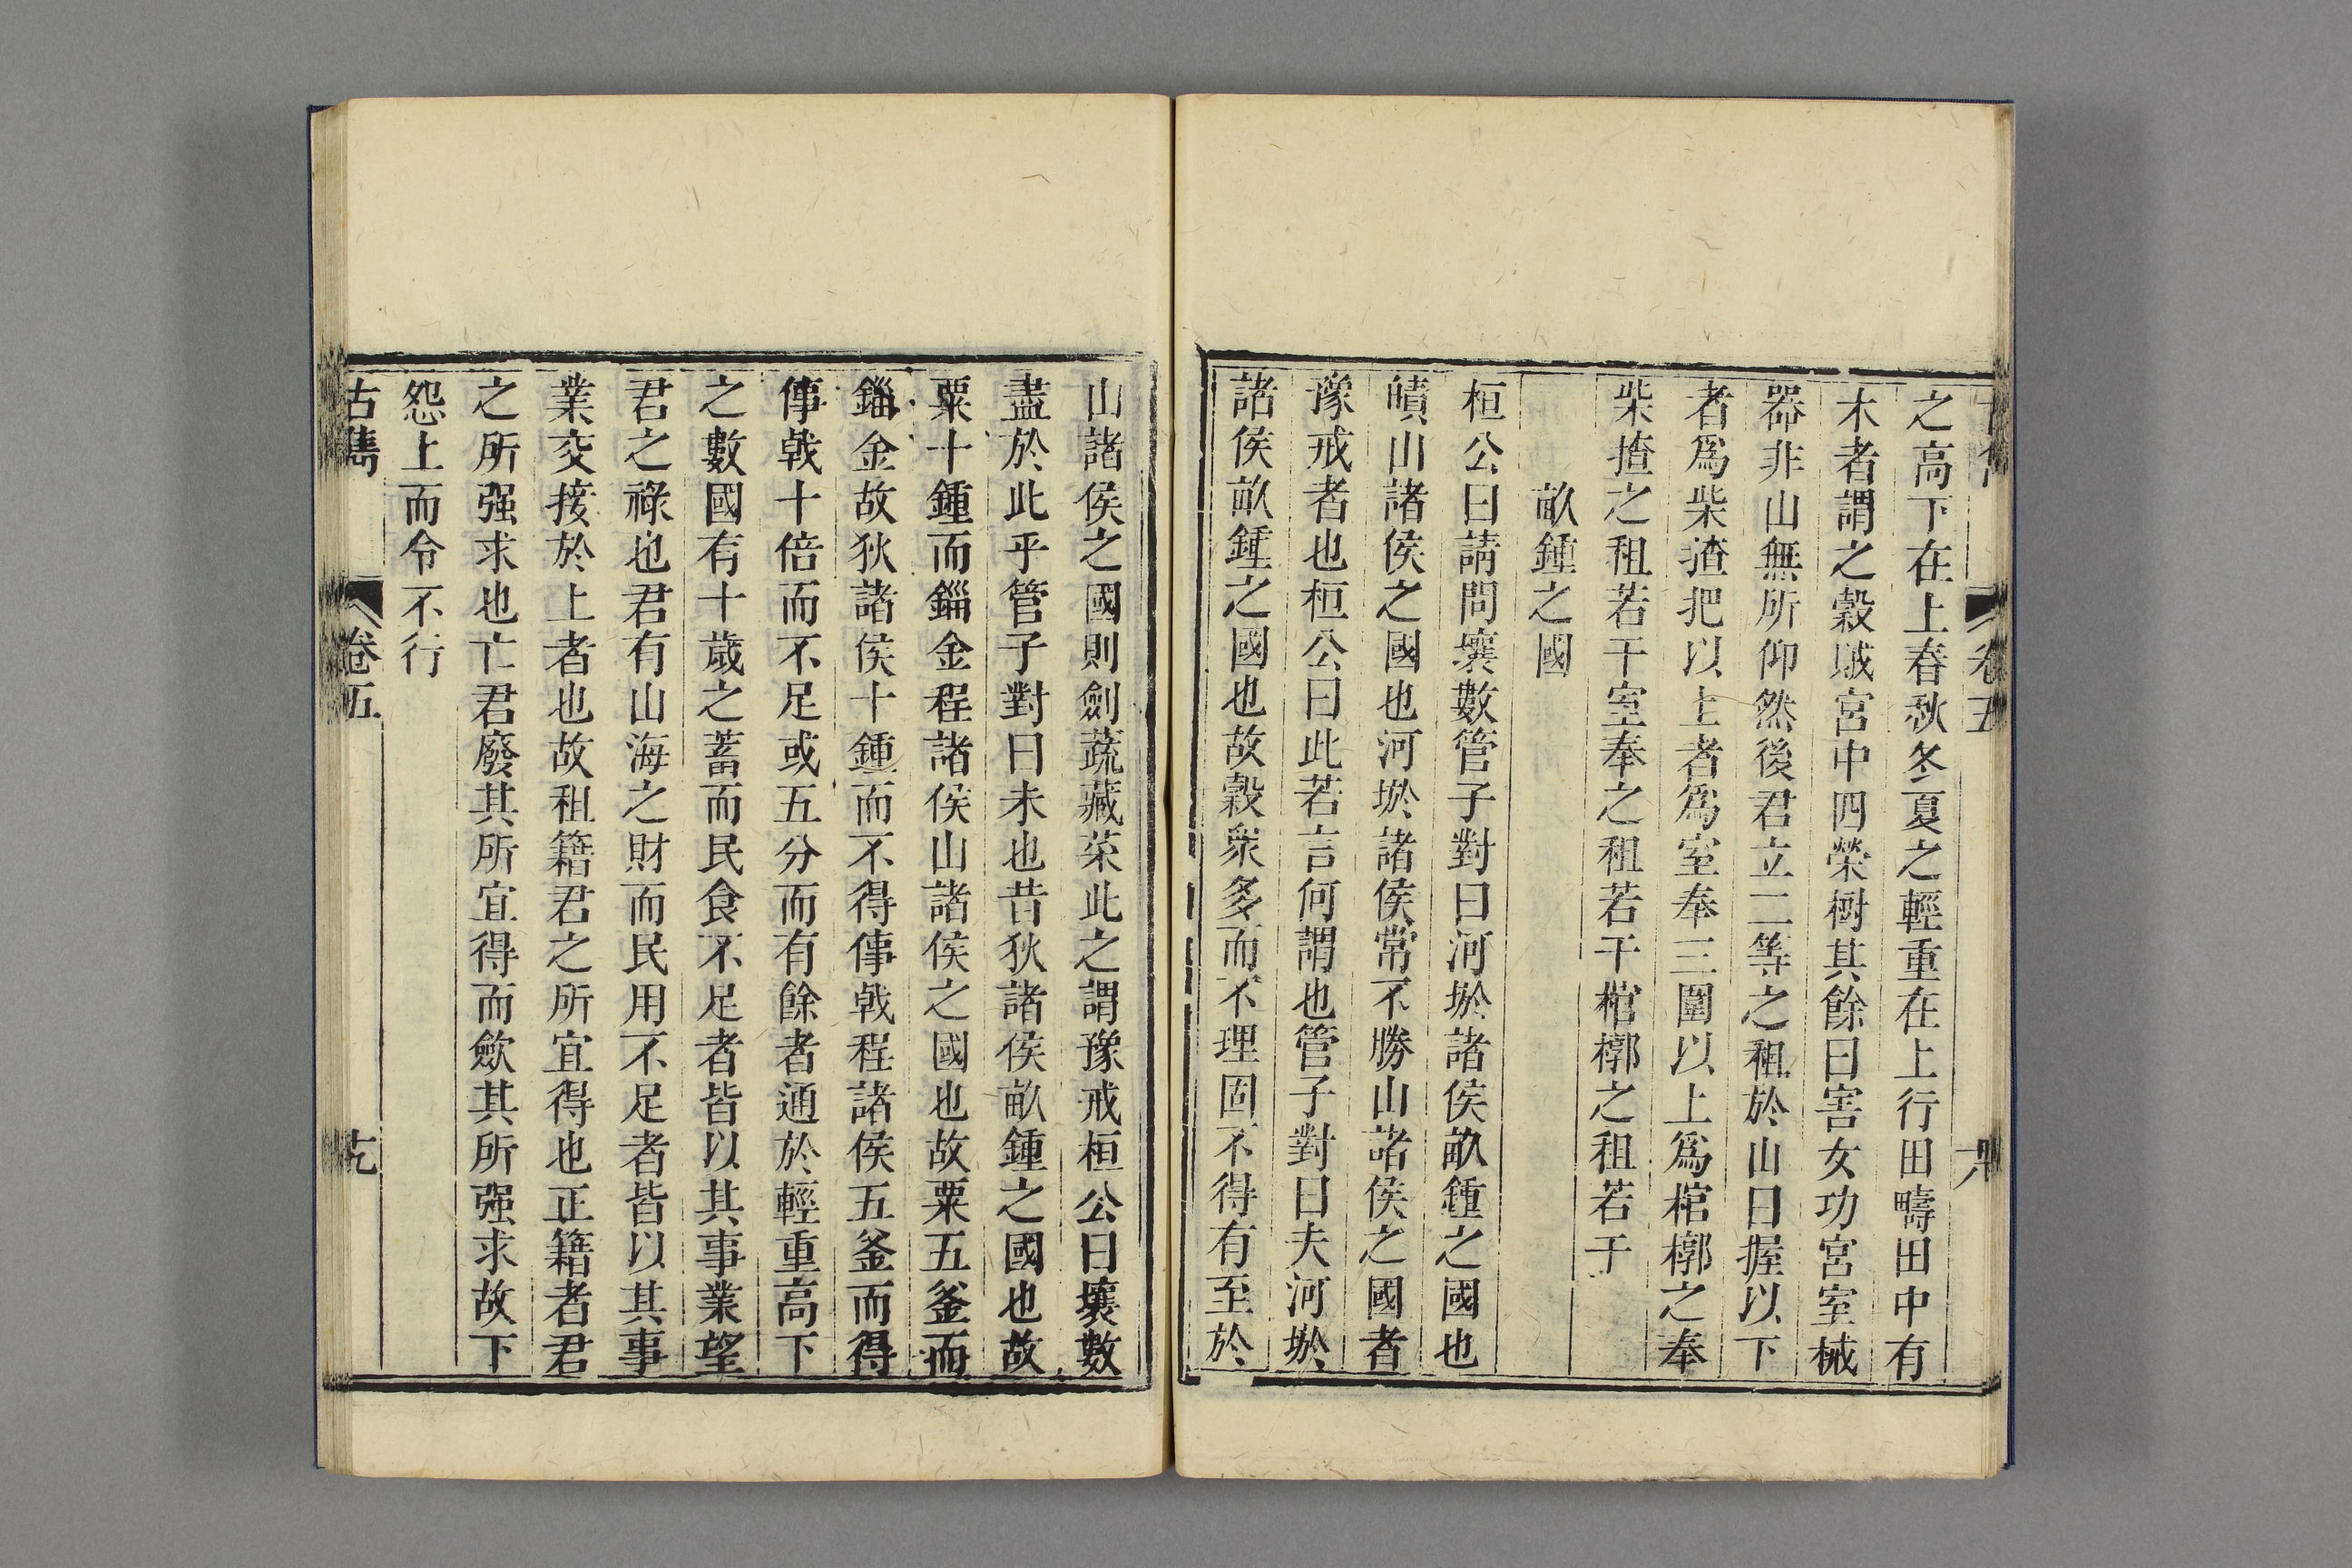 卷五
之高下在上春秋冬夏之輕重在上行田疇田中有
木者謂之穀賊宮中四榮樹其餘曰害女功宮室械
器非山無所仰然後君立三等之租於山曰握以下
者爲柴揸把以上者爲室奉三圍以上爲棺槨之奉
柴揸之租若干室奉之租若干棺槨之租若干
畝鍾之國
桓公曰請問壤數管子對曰河㳀諸侯畝鍾之國也
皟山諸侯之國也河㳀諸侯常不勝山諸侯之國者
豫戒者也桓公曰此若言何謂也管子對曰夫河㳀
諸侯畝鍾之國也故穀衆多而不理固不得有至於
山諸侯之國則劍蔬藏菜此之謂豫戒桓公曰壤數
盡於此乎管子對曰未也昔狄諸侯畝鍾之國也故
粟十鍾而錙金程諸侯山諸侯之國也故粟五釜而
錙金故狄諸侯十鍾而不得倳戟程諸侯五釜而得
倳戟十倍而不足或五分而有餘者通於輕重高下
之數國有十歲之蓄而民食不足者皆以其事業望
君之祿也君有山海之財而民用不足者皆以其事
業交接於上者也故租籍君之所宜得也正籍者君
之所强求也亡君廢其所宜得而斂其所强求故下
怨上而令不行
古雋
卷五